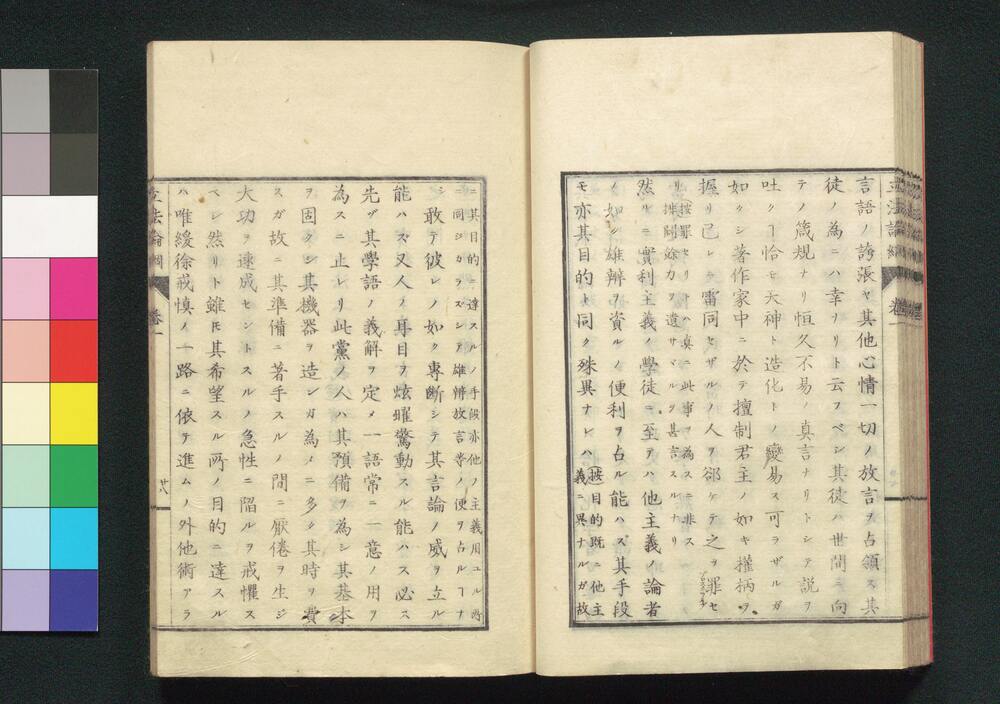 立法論綱 卷一
言語ノ誇張ヤ其他心情一切ノ放言ヲ占領ス其
徒ノ為ニハ幸リリト云フベシ其徒ハ世間ニ向
テノ箴規ナリ恒久不易ノ真言ナリトシテ説ヲ
吐クヿ恰モ天神ト造化トノ變易ス可ラザルガ
如クシ著作家中ニ於テ擅制君主ノ如キ權柄ヲ
握リ己レニ雷同セザルノ人ヲ郤ケテ之ヲ罪セ
リ按罪セリトハ真ニ此事ヲ為スニ非ス
排闢餘力ヲ遺サヾルヲ甚言スルナリ
然ルニ實利主義ノ學徒ニ至テハ他主義ノ論者
ノ如ク雄辨ヲ資ルノ便利ヲ占ル能ハズ其手段
モ亦其目的ト同ク殊異ナレハ按目的既ニ他主
義ニ異ナルガ故
ニ其目的ニ達スルノ手段亦他ノ主義用ユル所
ニ同ジカラズシテ雄辨故言等ノ便ヲ占ルヿナ
シ敢テ彼レノ如ク專斷シテ其言論ノ威ヲ立ル
能ハズ又人ノ耳目ヲ炫曜驚動スル能ハス必ス
先ヅ其學語ノ義解ヲ定メ一語常ニ一意ノ用ヲ
為スニ止レリ此黨ノ人ハ其預備ヲ為シ其基本
ヲ固クシ其機器ヲ造ンガ為メニ多ク其時ヲ費
スガ故ニ其準備ニ著手スルノ間ニ厭倦ヲ生ジ
大功ヲ速成セントスルノ急性ニ陥ルヲ戒懼ス
ベシ然リト雖𪜈其希望スル所ノ目的ニ達スル
ハ唯緩徐戒慎ノ一路ニ依テ進ムノ外他術アラ
立法論綱 卷一 廿八